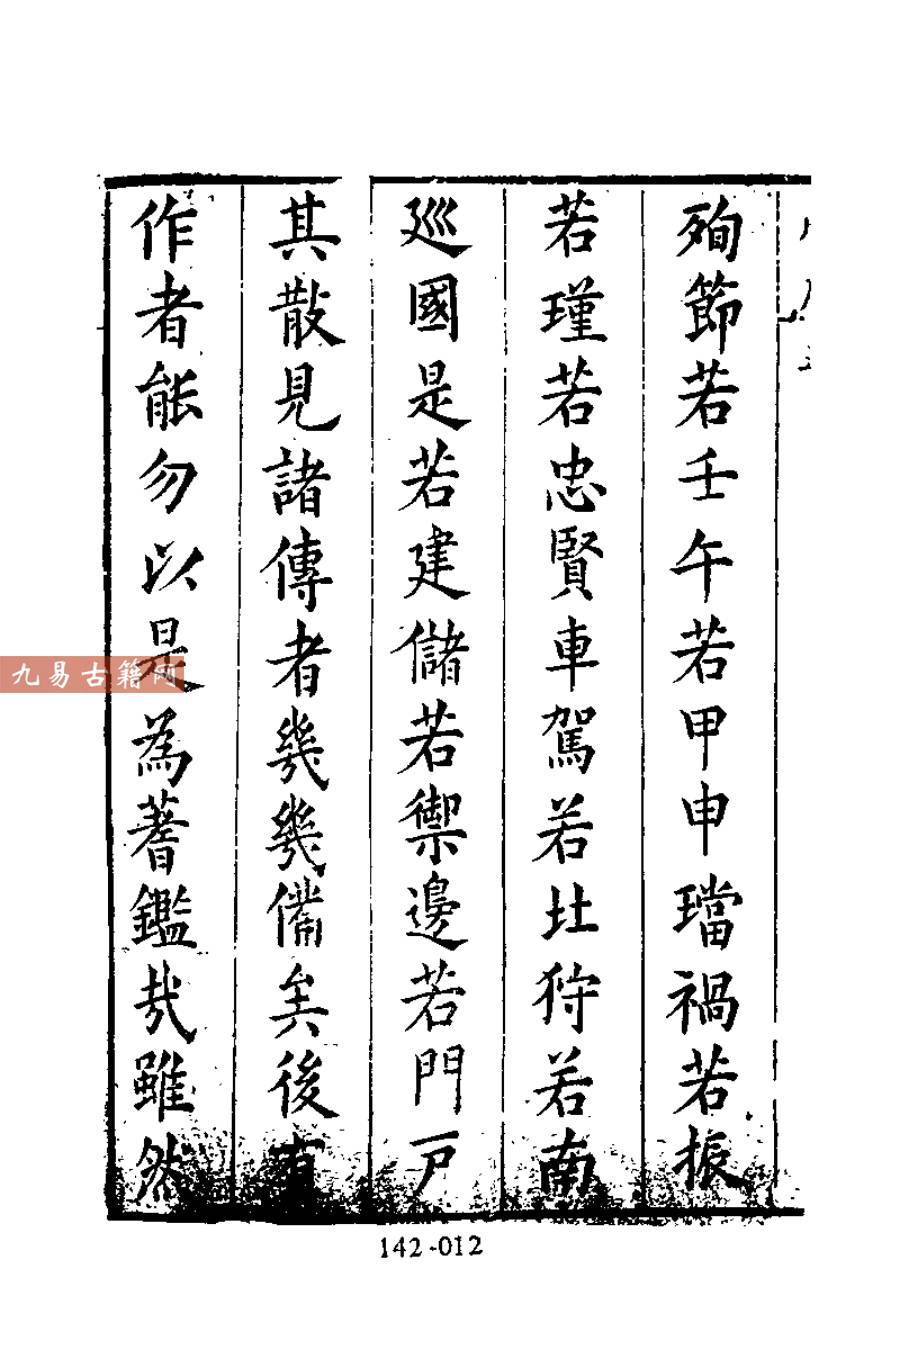 殉節若壬午若甲申璫禍若振
若瑾若忠賢車駕若北狩若南
廵國是若建儲若禦邊若門戸
其散見諸傳者幾幾備矣後有
作者能勿以是為蓍鑑㢤雖然
142-012
九易古籍网